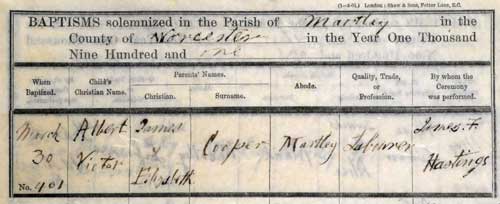 (1-4-01.) London: Shaw & Sons, Fetter Lane, E.C.
BAPTISMS solemnized in the Parish of Martley in the
County of Worcester in the Year One Thousand
Nine Hundred and one
When Baptized. Child's Christian Name. Parents' Names. Abode. Quality, Trade, or Profession. By whom the Ceremony was performed.
Christian. Surname.
March 30 No. 401 Albert Victor James & Elizabeth Cooper Martley Labourer James F. Hastings